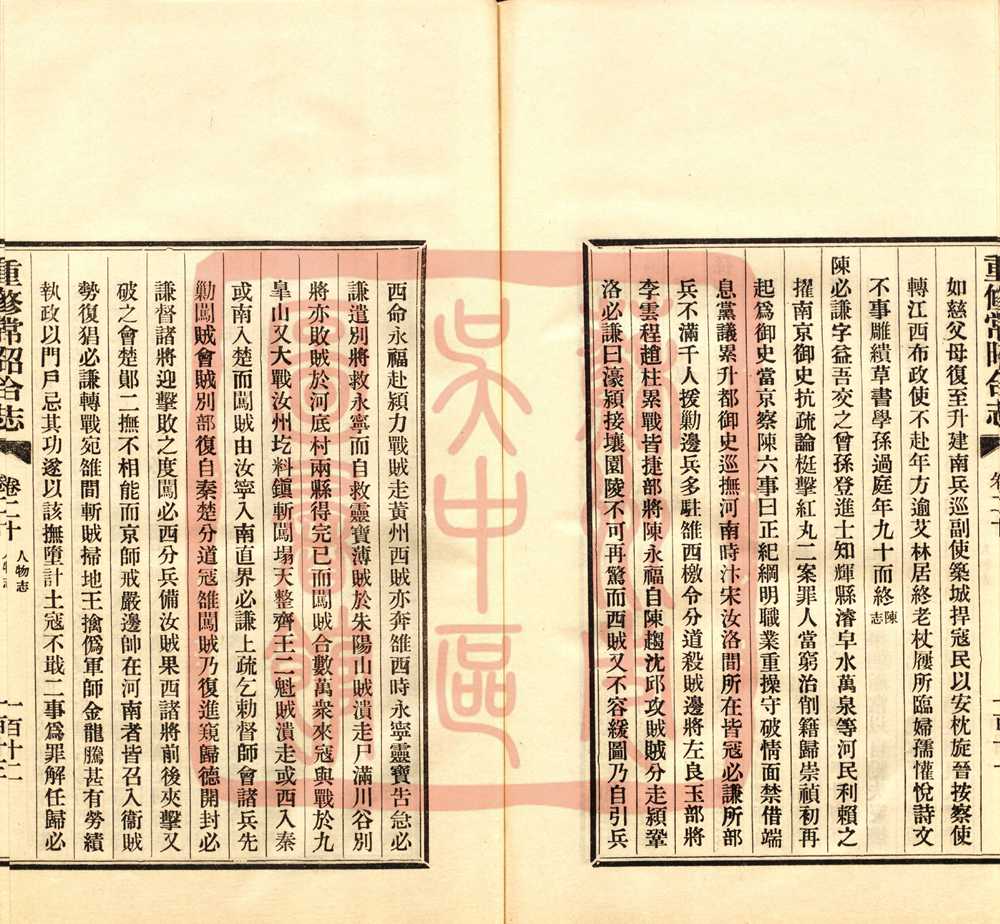 如慈父母復至升建南兵巡副使築城捍寇民以安枕旋晉按察使
轉江西布政使不赴年方逾艾林居終老杖履所臨婦孺懽悅詩文
不事雕繢草書學孫過庭年九十而終陳志
陳必謙字益吾交之曾孫登進士知輝縣濬皁水萬泉等河民利賴之
擢南京御史抗疏論梃擊紅丸二案罪人當窮治削籍歸崇禎初再
起爲御史當京察陳六事曰正紀綱明職業重操守破情面禁借端
息黨議累升都御史巡撫河南時汴宋汝洛間所在皆寇必謙所部
兵不滿千人援勦邊兵多駐雒西檄令分道殺賊邊將左良玉部將
李雲程趙柱累戰皆捷部將陳永福自陳趨沈邱攻賊賊分走潁鞏
洛必謙曰濠潁接壤園陵不可再驚而西賊又不容緩圖乃自引兵
西命永福赴潁力戰賊走黃州西賊亦奔雒西時永寧靈寶吿急必
謙遣別將救永寧而自救靈寶薄賊於朱陽山賊潰走尸滿川谷別
將亦敗賊於河底村兩縣得完已而闖賊合數萬衆來寇與戰於九
臯山又大戰汝州圪料鎭斬闖塌天整齊王二魁賊潰走或西入秦
或南入楚而闖賊由汝寧入南直界必謙上疏乞勅督師會諸兵先
勦闖賊會賊別部復自秦楚分道寇雒闖賊乃復進窺歸德開封必
謙督諸將迎擊敗之度闖必西分兵備汝賊果西諸將前後夾擊又
破之會楚鄖二撫不相能而京師戒嚴邊帥在河南者皆召入衞賊
勢復猖必謙轉戰宛雒間斬賊掃地王擒僞軍師金龍騰甚有勞績
執政以門戶忌其功遂以該撫墮計土寇不戢二事爲罪解任歸必
重修常昭合志
卷二十
人物志
一百十二
吳中區